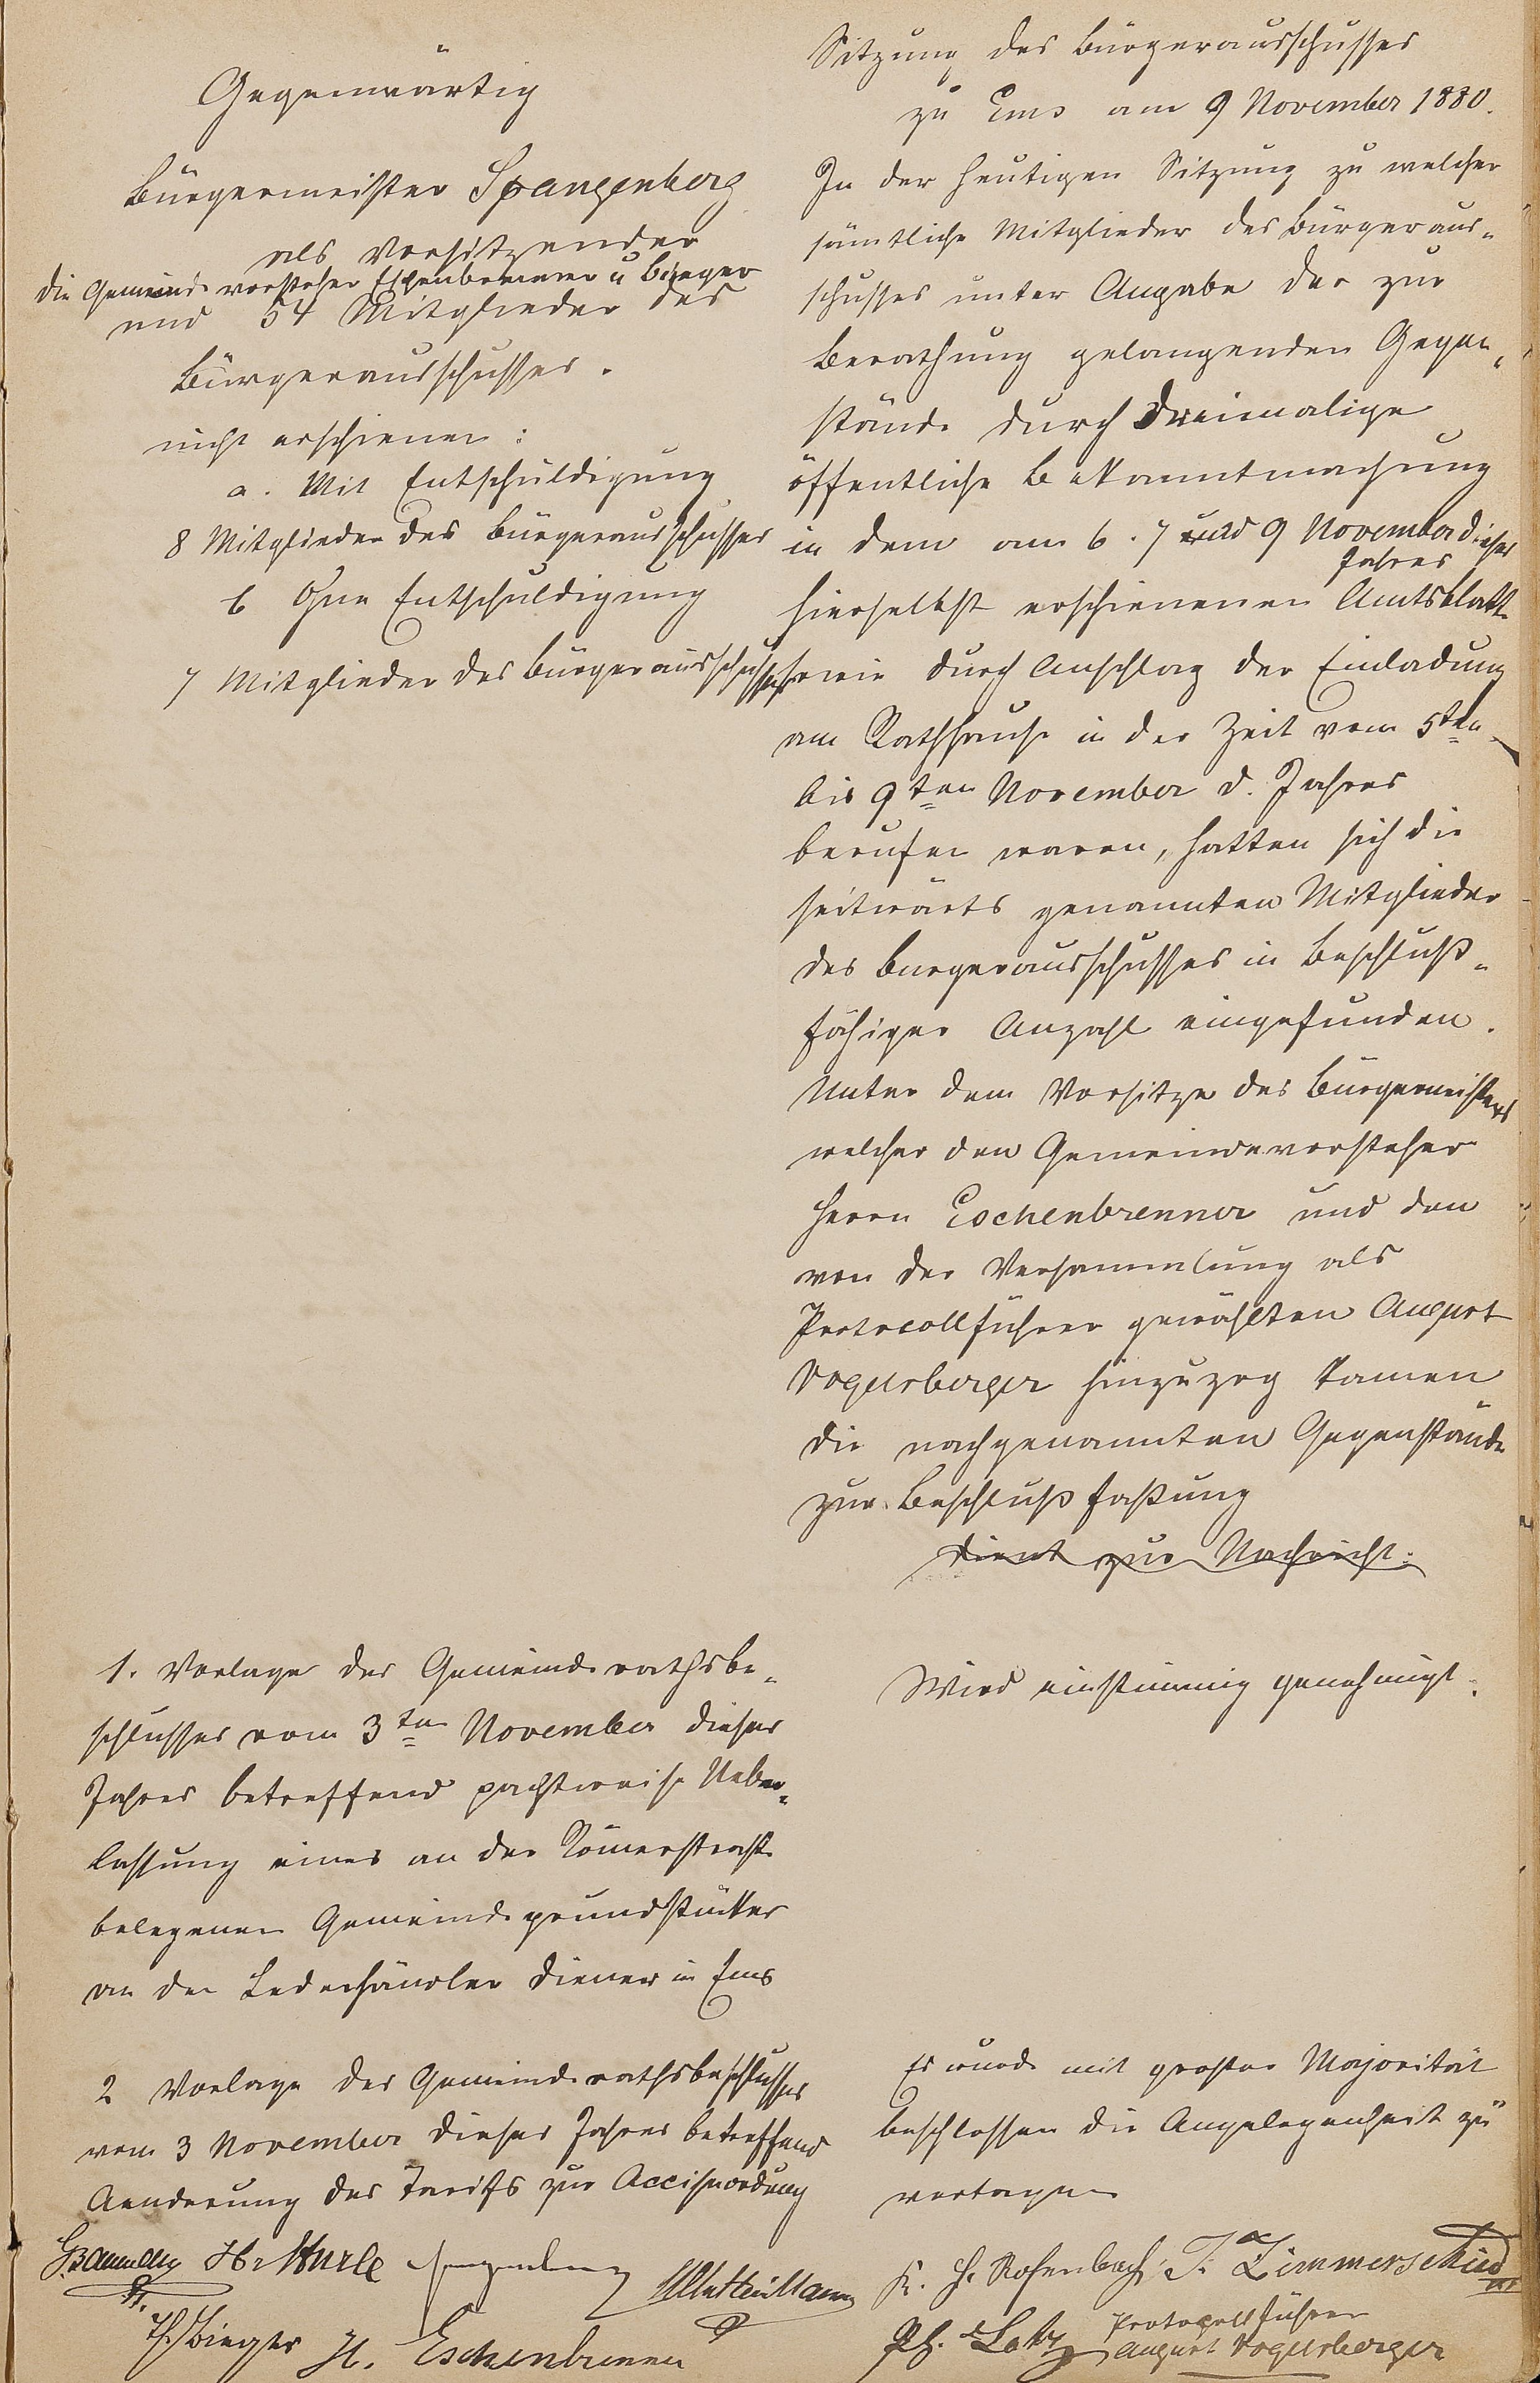 Gegenwärtig
Bürgermeister Spangenberg
als Vorsitzender
die Gemeindevorsteher Eschenbrenner u Bürger
und 54 Mitglieder des
Bürgerausschusses.
nicht erschienen:
a. Mit Entschuldigung
8 Mitglieder des Bürgerausschusses
b Ohne Entschuldigung
7 Mitglieder des Bürgerausschusses
Sitzung des Bürgerausschusses
zu Ems am 9 November 1880.
In der heutigen Sitzung zu welcher
sämtliche Mitglieder des Bürgeraus-
schusses unter Angabe der zur
Berathung gelangenden Gegen-
stände durch dreimalige
öffentliche Bekanntmachung
in dem am 6. 7 und 9 November dieses
Jahres
hierselbst erschienenen Amtsblatt
sowie durch Anschlag der Einladung
am Rathhause in der Zeit vom 5ten
bis 9ten November d. Jahres
berufen waren, hatten sich die
seitwärts genannten Mitglieder
des Bürgerausschusses in beschluß-
fähiger Anzahl eingefunden.
Unter dem Vorsitze des Bürgermeisters
welcher den Gemeindevorsteher
Herrn Eschenbrenner und den
von der Versammlung als
Protocollführer gewählten August
Vogelsberger hinzuzog kamen
die nachgenannten Gegenstände
zur Beschlußfaßung
dient zur Nachricht.
1. Vorlage des Gemeinderathsbe-
schlusses vom 3ten November dieses
Jahres betreffend pachtweise Ueber-
lassung eines an der Römerstraße
belegenen Gemeindegrundstückes
an den Lederhändler Diener in Ems
Wird einstimmig genehmigt.
2 Vorlage des Gemeinderathsbeschlusses
vom 3 November dieses Jahres betreffend
Aenderung des Tarifs zur Acciseordnung
Es wurde mit großer Majorität
beschlossen die Angelegenheit zu
vertagen
Spangenberg
K. H. Rosenbach J. Zimmerschied
H. Eschenbrenner
Ph. Lotz
Protocollführer
August Vogelsberger